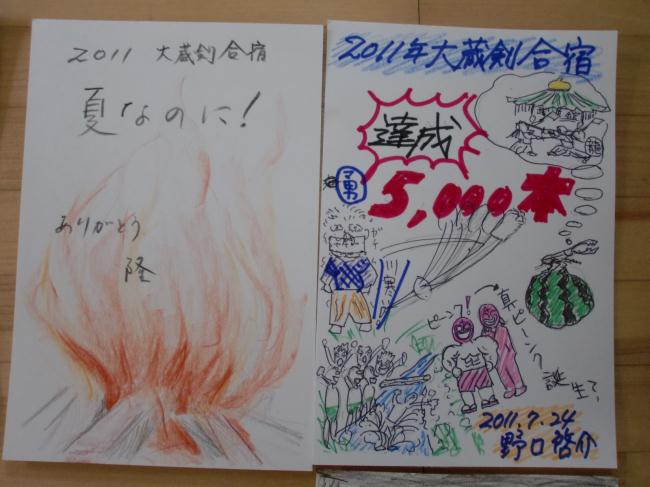 2011 大蔵剣合宿
夏なのに!
ありがとう
隆
2011年大蔵剣合宿
達成
5,000本
龍
ピンク!
真ピーンク
誕生?
2011.7.24
野口啓介